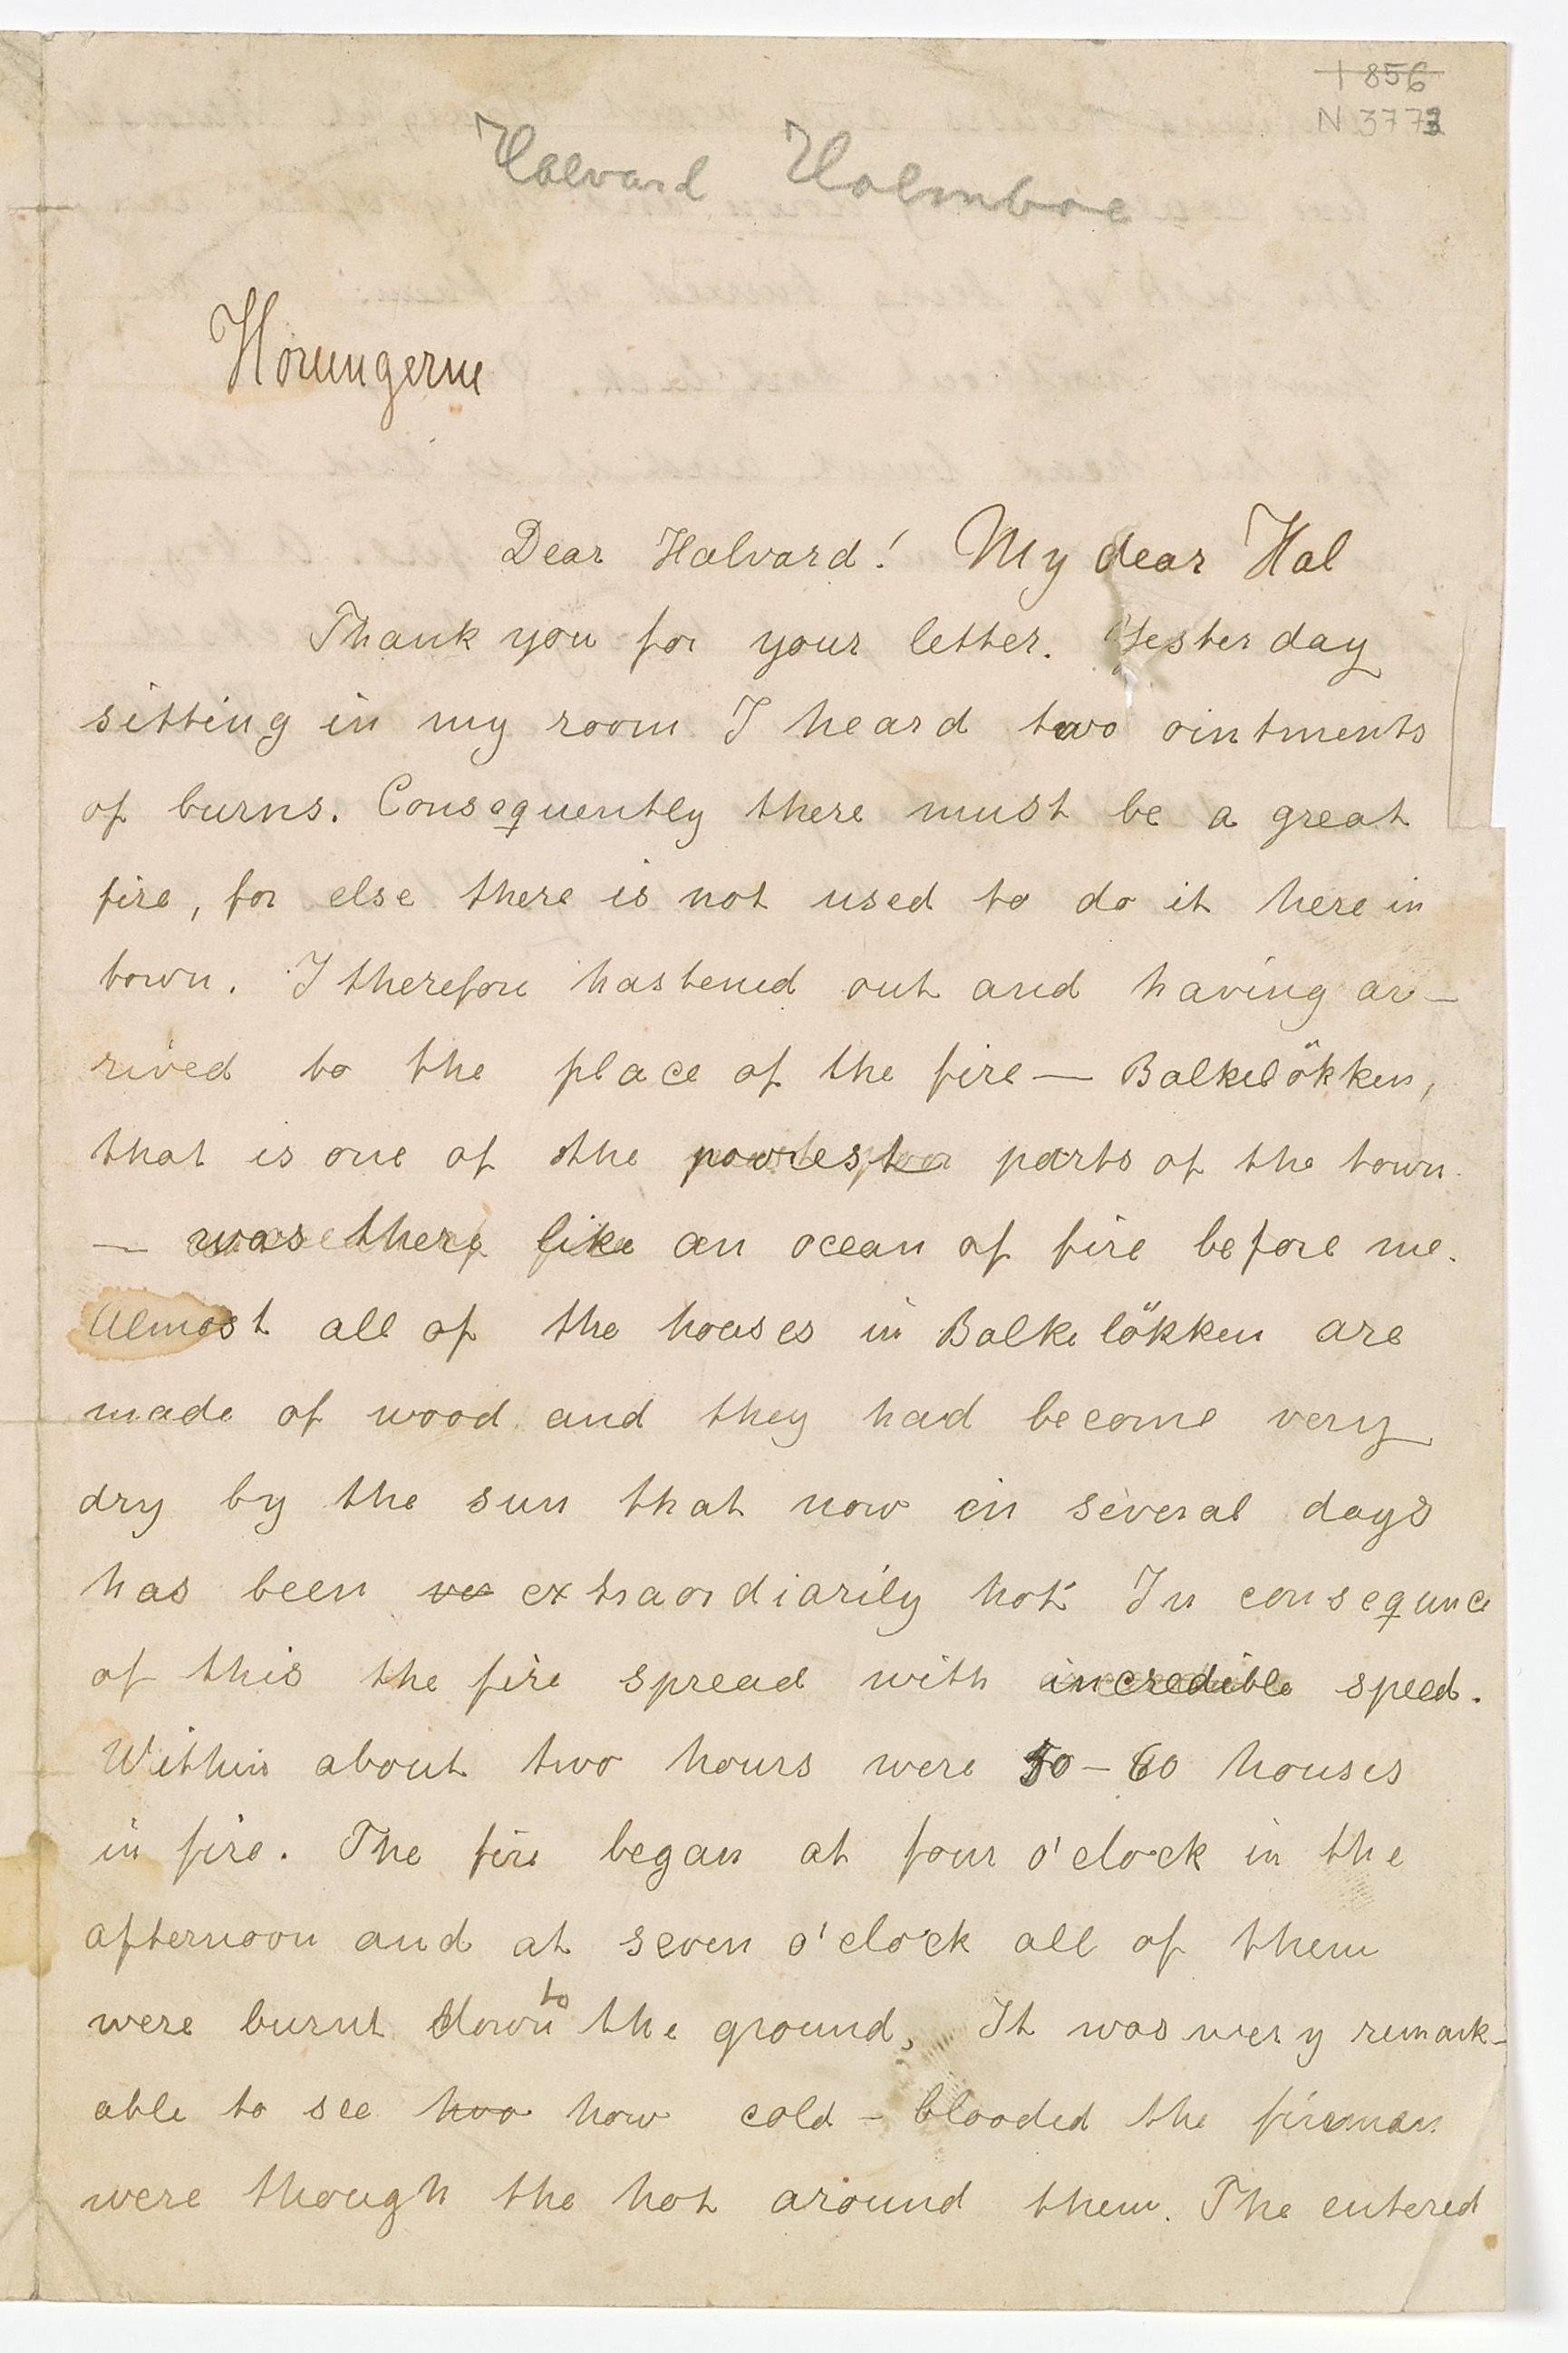 1856
N 3773
Halvard Holmboe
Horungerne
Dear Halvard! My dear Hal
Thank you for your letter. Yesterday
sitting in my room I heard two ointments
of burns. Consequently there must be a great
fire, for else there is not used to do it here in
town. I therefore hastened out and having ar–
rived to the place of the fire — Balkelökken,
that is one of the poorest parts of the town
— was there like an ocean of fire before me.
Almost all of the houses in Balkelökken are
made of wood and they had become very
dry by the sun that now in several days
has been ve extraordiarily hot. In consequnce
of this the fire spread with incredible speed.
Within about two hours were 50–60 houses
in fire. The fire began at four o'clock in the
afternoon and at seven o'clock all of them
were burnt down to the ground. It was very remark–
able to see hoo how cold-blooded the firemen
were though the hot around them. The entered